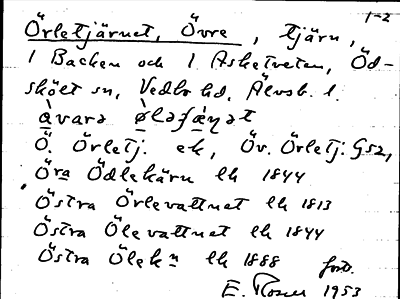 1-2
Örletjärnet, Övre, tjärn,
1 Backen och 1 Asketveten, Öd-
skölt sn, Vedbo hd, Älvsb. l.
Ö. Örletj. ek, Öv. Örletj. Gsz,
Öra Ödlekärn lh 1844
Östra Örlevattnet lh 1813
Östra Ölevattnet lh 1844
Östra Ölekn lh 1888 forts.
E. Rosen 1953